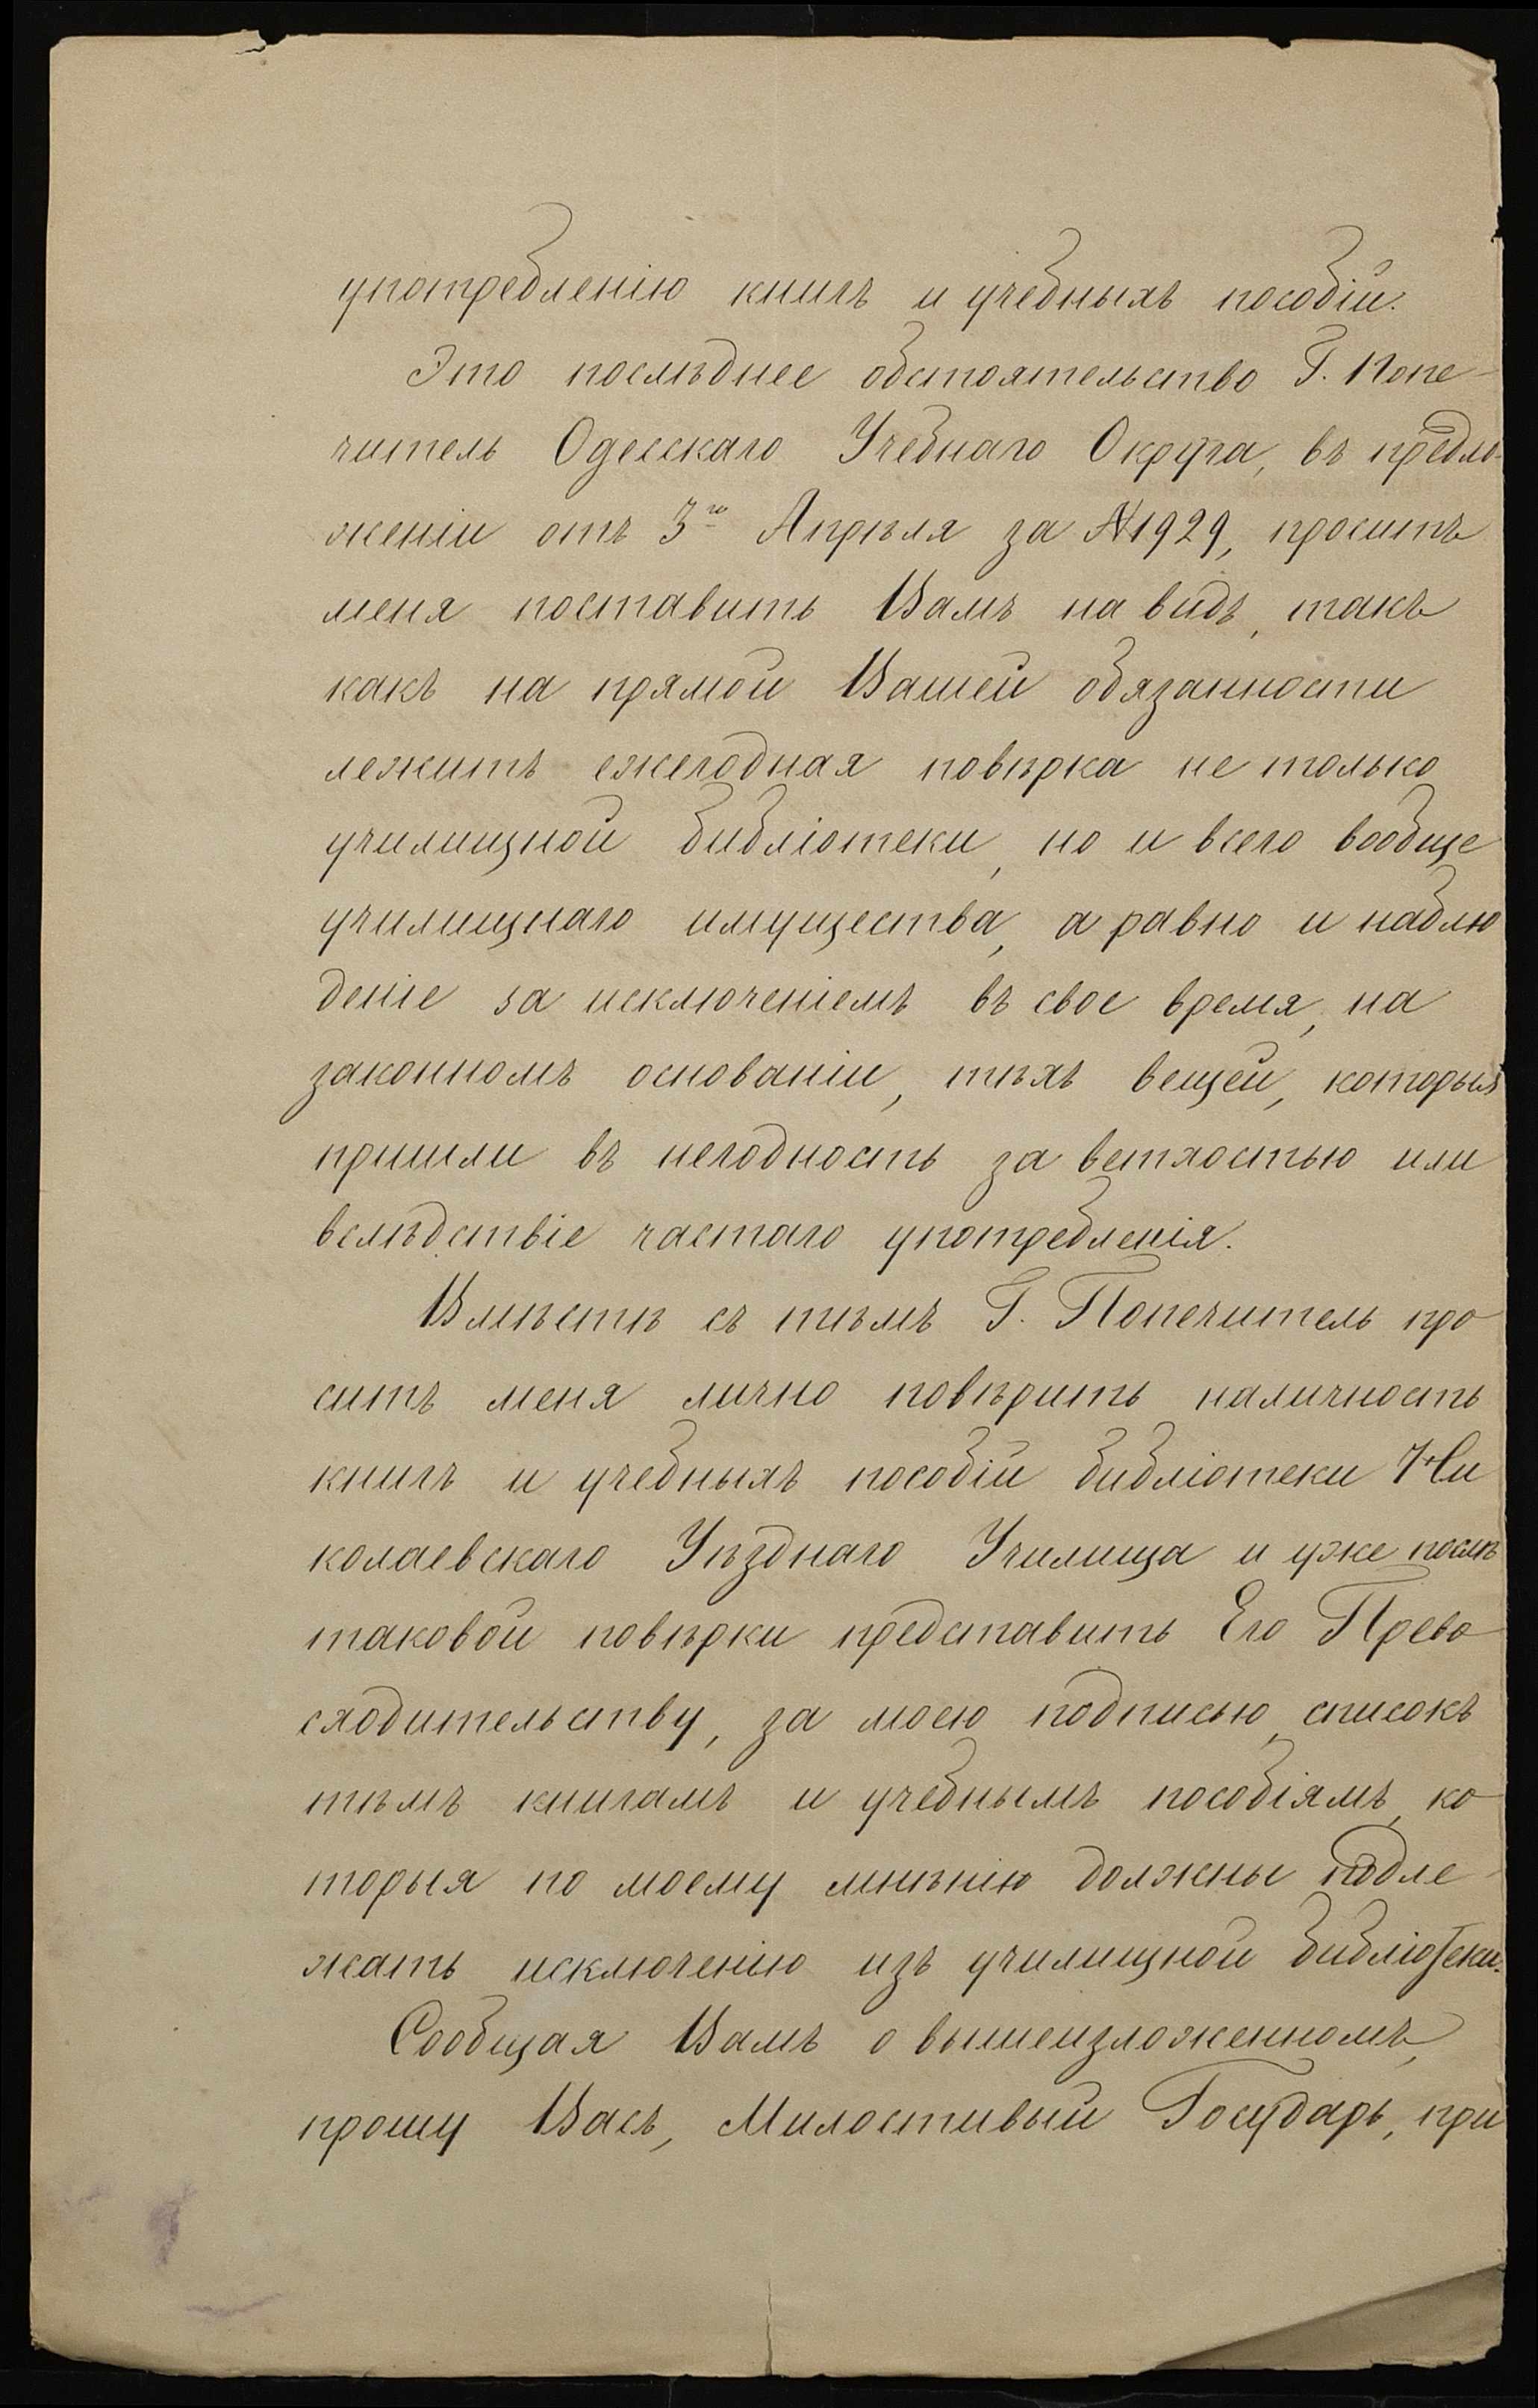 употребленію книгъ и учебныхъ пособій.
Это послѣднее обстоятельство Г. Попе-
читель Одесскаго Учебнаго Округа, въ предло-
женіи отъ 3го Апрѣля за №1929, проситъ
меня поставить Вамъ на видъ, такъ
какъ на прямой Вашей обязанности
лежитъ ежегодная повѣрка не только
училищной библіотеки, но и всего вообще
училищнаго имущества, а равно и наблю
деніе за исключеніемъ въ свое время, на
законномъ основаніи, тѣхъ вещей, которыя
пришли въ негодность за ветхостью или
вслѣдствіе частаго употребленія.
Вмѣстѣ съ тѣмъ Г. Попечитель про
ситъ меня лично повѣрить наличность
книгъ и учебныхъ пособій библіотеки Ни
колаевскаго Уѣзднаго Училища и уже послѣ
таковой повѣрки представить Его Прево
сходительству, за моею подписью, списокъ
тѣмъ книгамъ и учебнымъ пособіямъ, ко
торыя по моему мнѣнію должны подле-
жать исключенію изъ училищной библіотеки.
Сообщая Вамъ о вышеизложенномъ,
прошу Васъ, Милостивый Государь, при